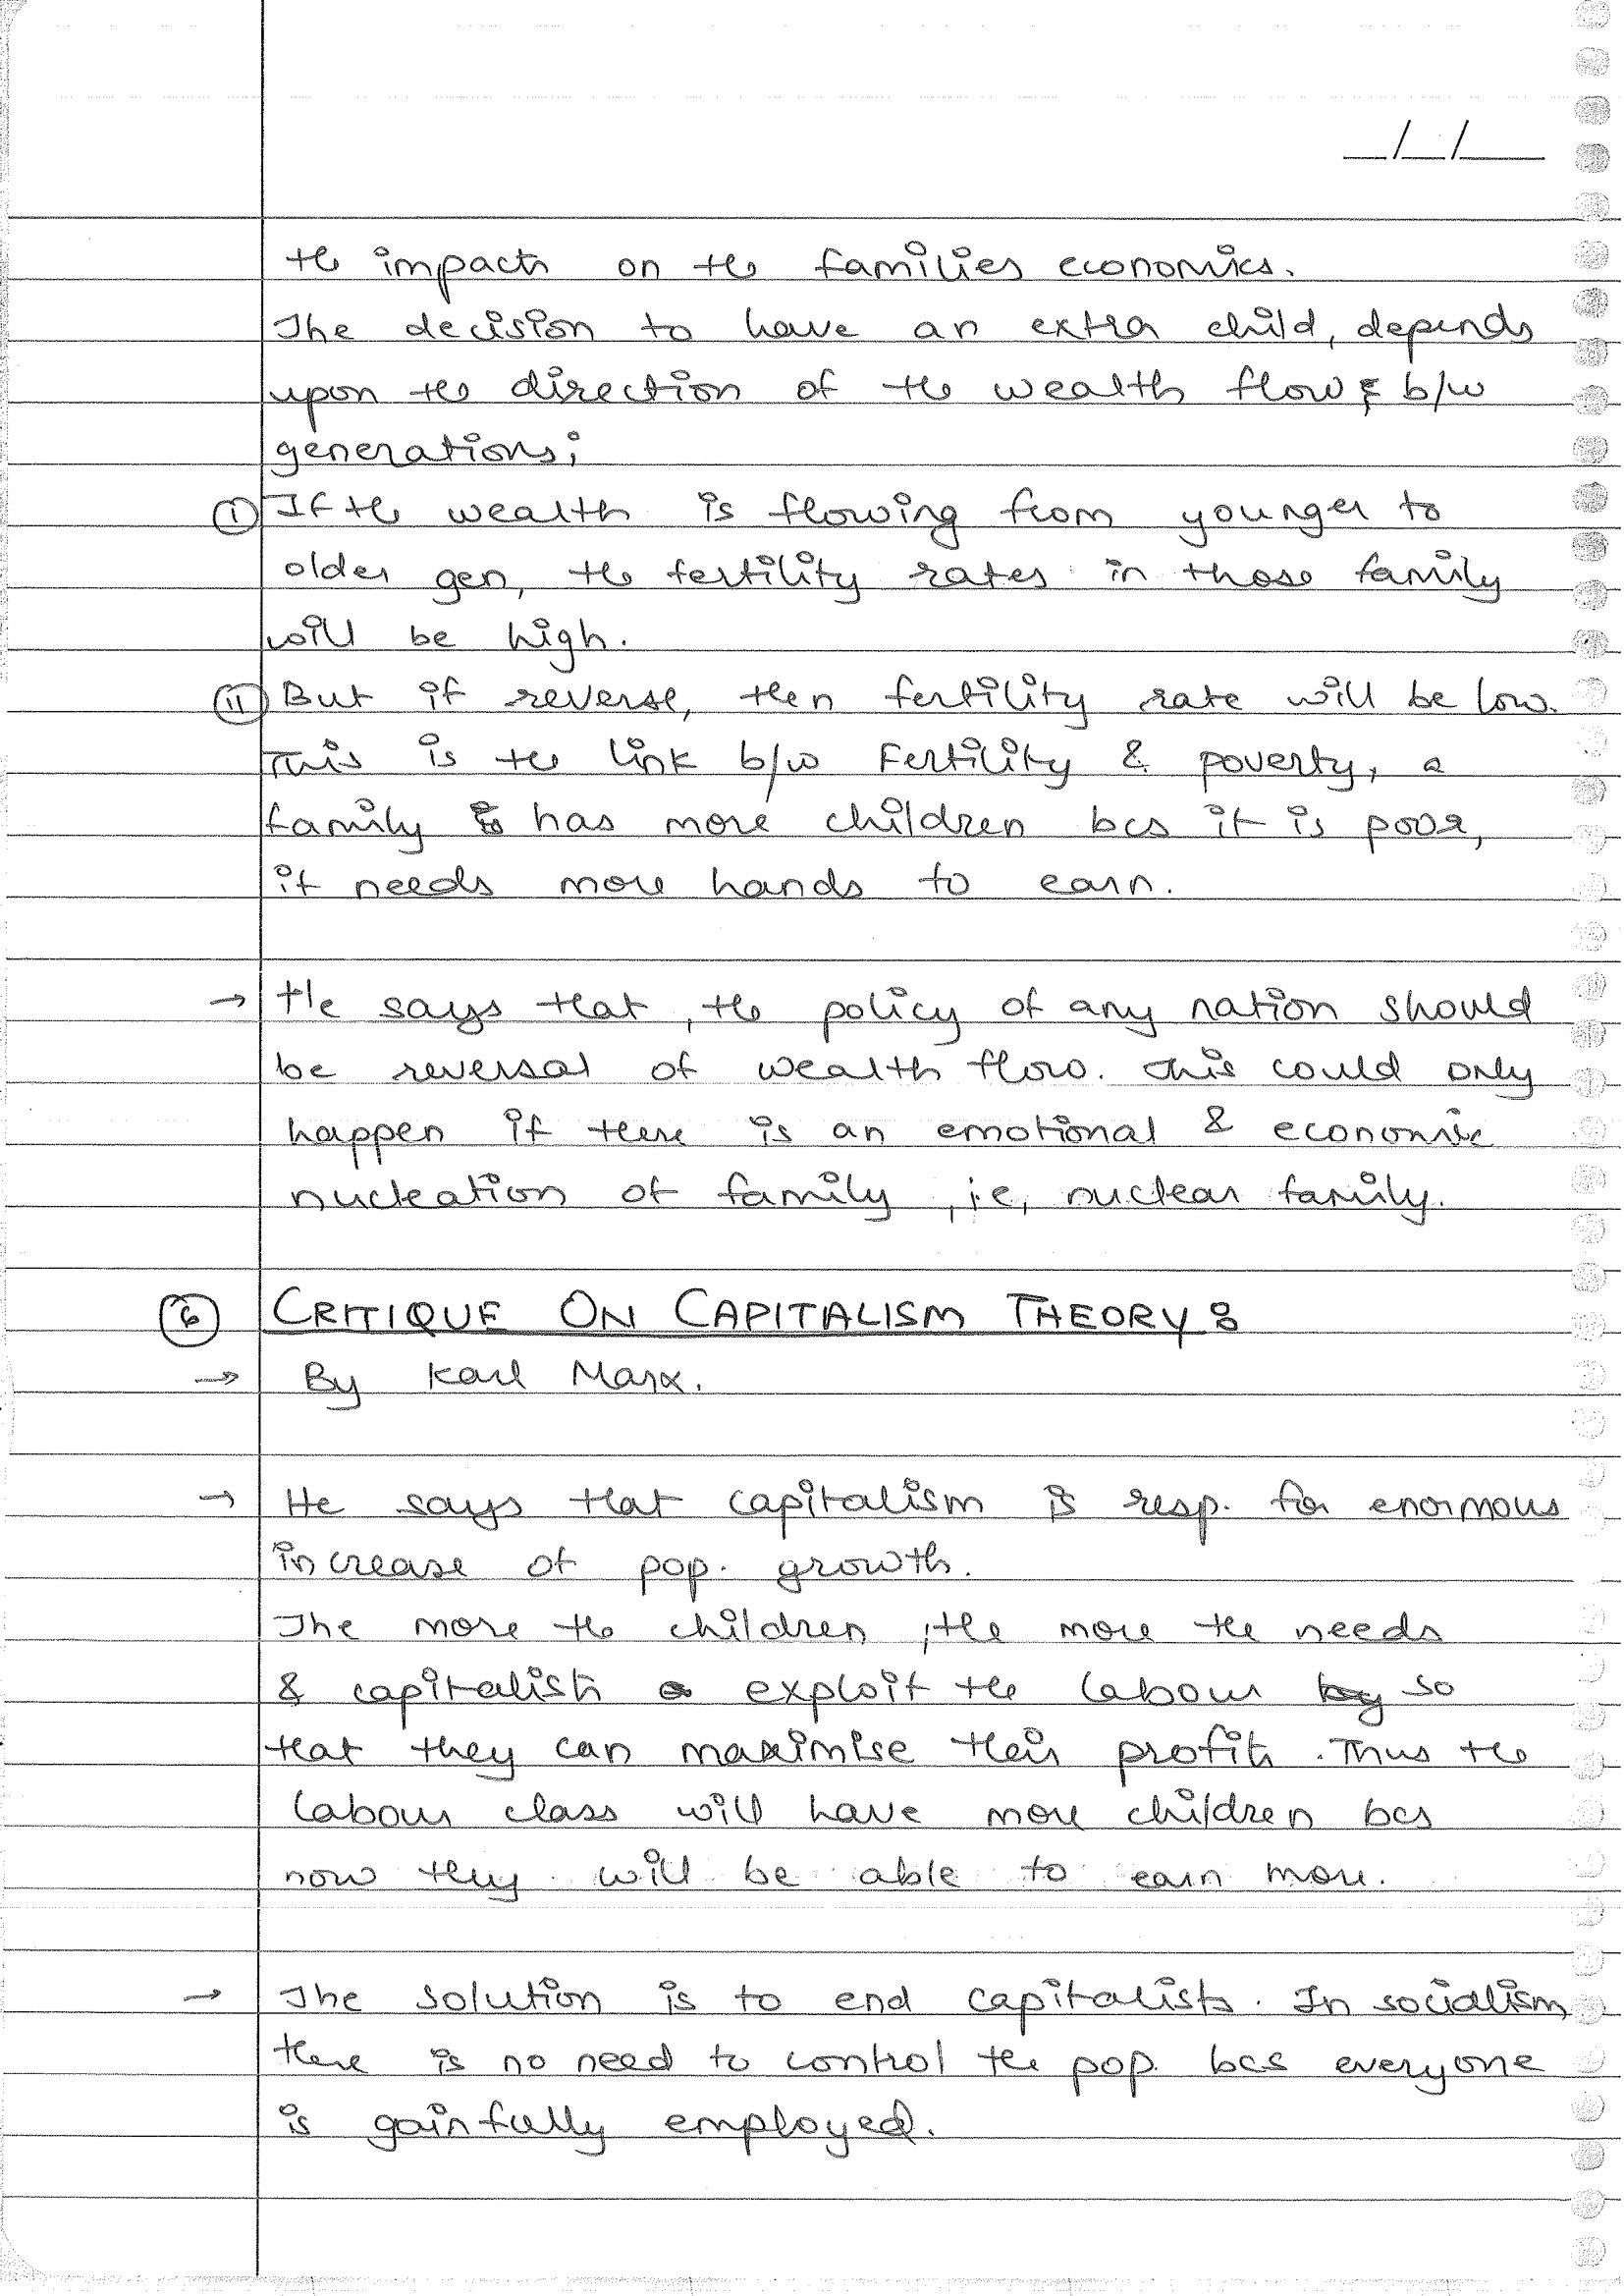 __/__/____
the impacts on the families economics.
The decision to have an extra child, depends
upon the direction of the wealth flow b/w
generations;
(i) If the wealth is flowing from younger to
older gen, the fertility rates in those family
will be high.
(ii) But if reverse, then fertility rate will be low.
This is the link b/w Fertility & poverty, a
family has more children bcs it is poor,
it needs more hands to earn.
→ He says that, the policy of any nation should
be reversal of wealth flow. This could only
happen if there is an emotional & economic
nucleation of family, i.e, nuclear family.
(6) CRITIQUE ON CAPITALISM THEORY:
→ By Karl Marx.
→ He says that capitalism is resp. for enormous
increase of pop. growth.
The more the children, the more the needs
& capitalists exploit the labour so
that they can maximise their profits. Thus the
labour class will have more children bcs
now they will be able to earn more.
→ The solution is to end capitalists. In socialism
there is no need to control the pop. bcs everyone
is gainfully employed.